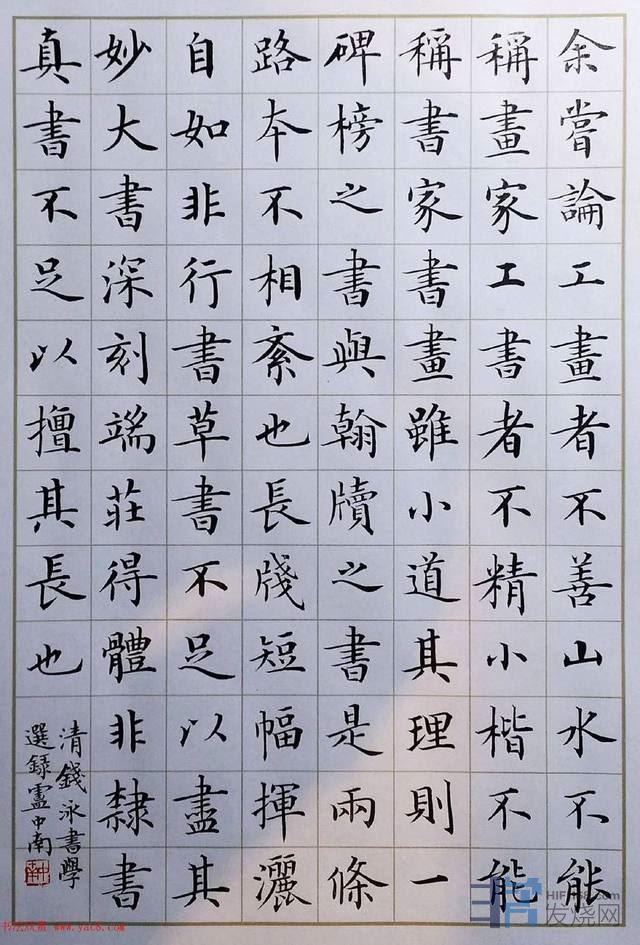 余嘗論工畫者不善山水不能
稱畫家工書者不精小楷不能
稱書家書畫雖小道其理則一
碑榜之書與翰牘之書是兩條
路本不相紊也長牋短幅揮灑
自如非行書草書不足以盡其
妙大書深刻端莊得體非隸書
真書不足以擅其長也
清錢泳書學
選録盧中南
书法欣赏 www.yac8.com
HIFI168.com
发烧网